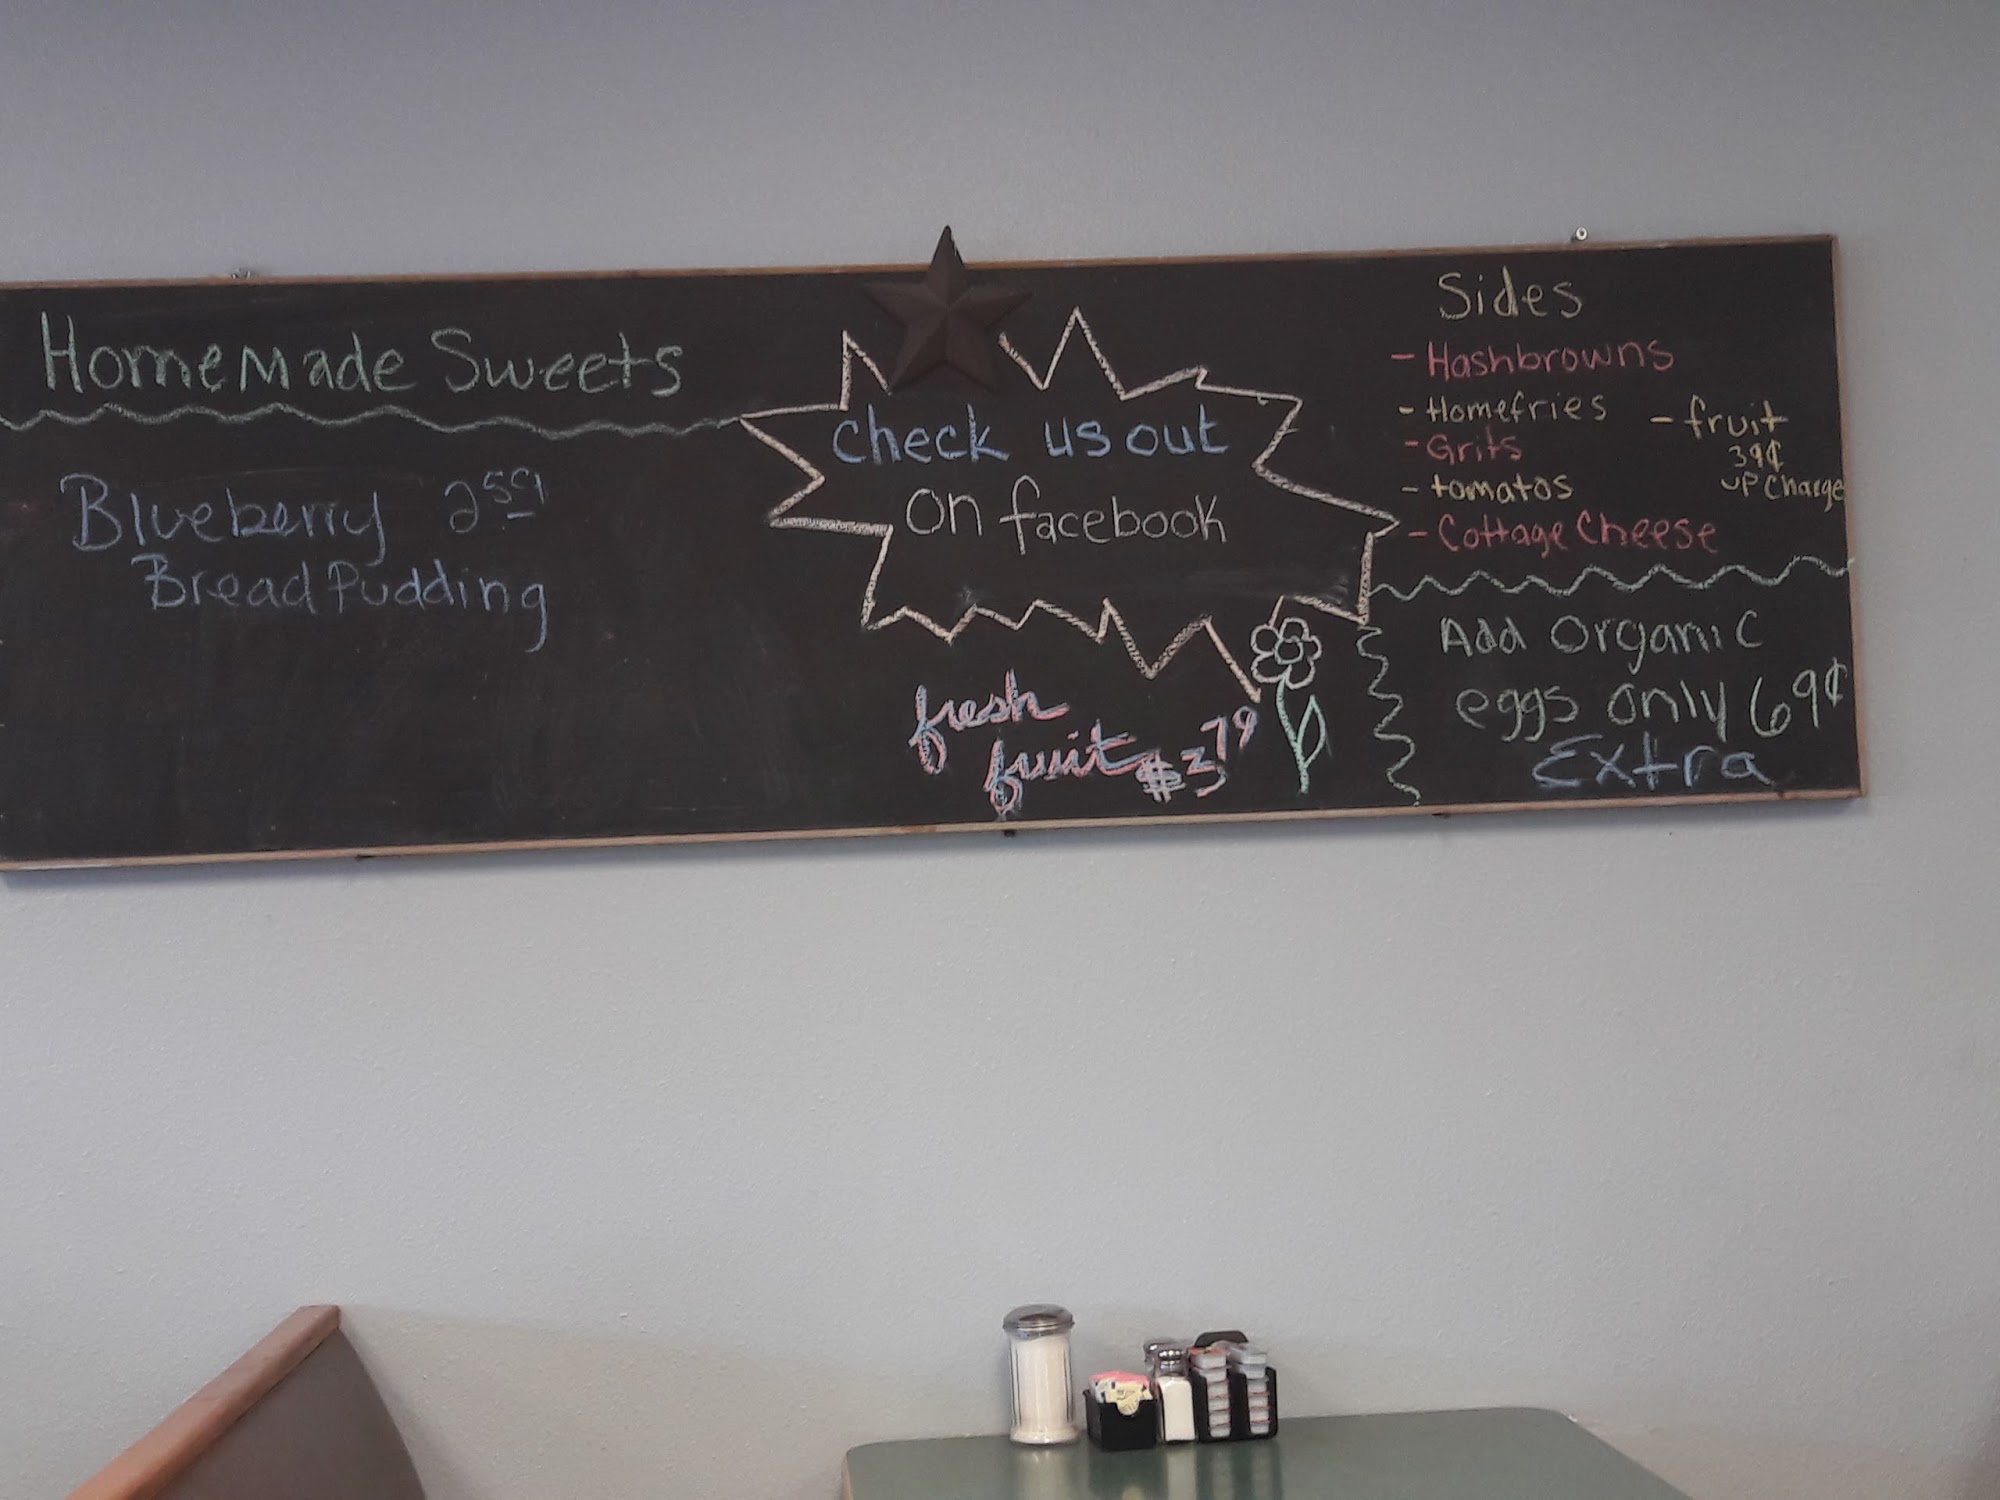 HomeMade Sweets
Blueberry 2 59
Bread Pudding
Check us out
on facebook
fresh
fruit $3 79
Sides
- Hashbrowns
- Homefries
- Grits
- tomatos
- Cottage Cheese
- fruit
39¢
UP Charge
Add Organic
eggs only 69¢
Extra